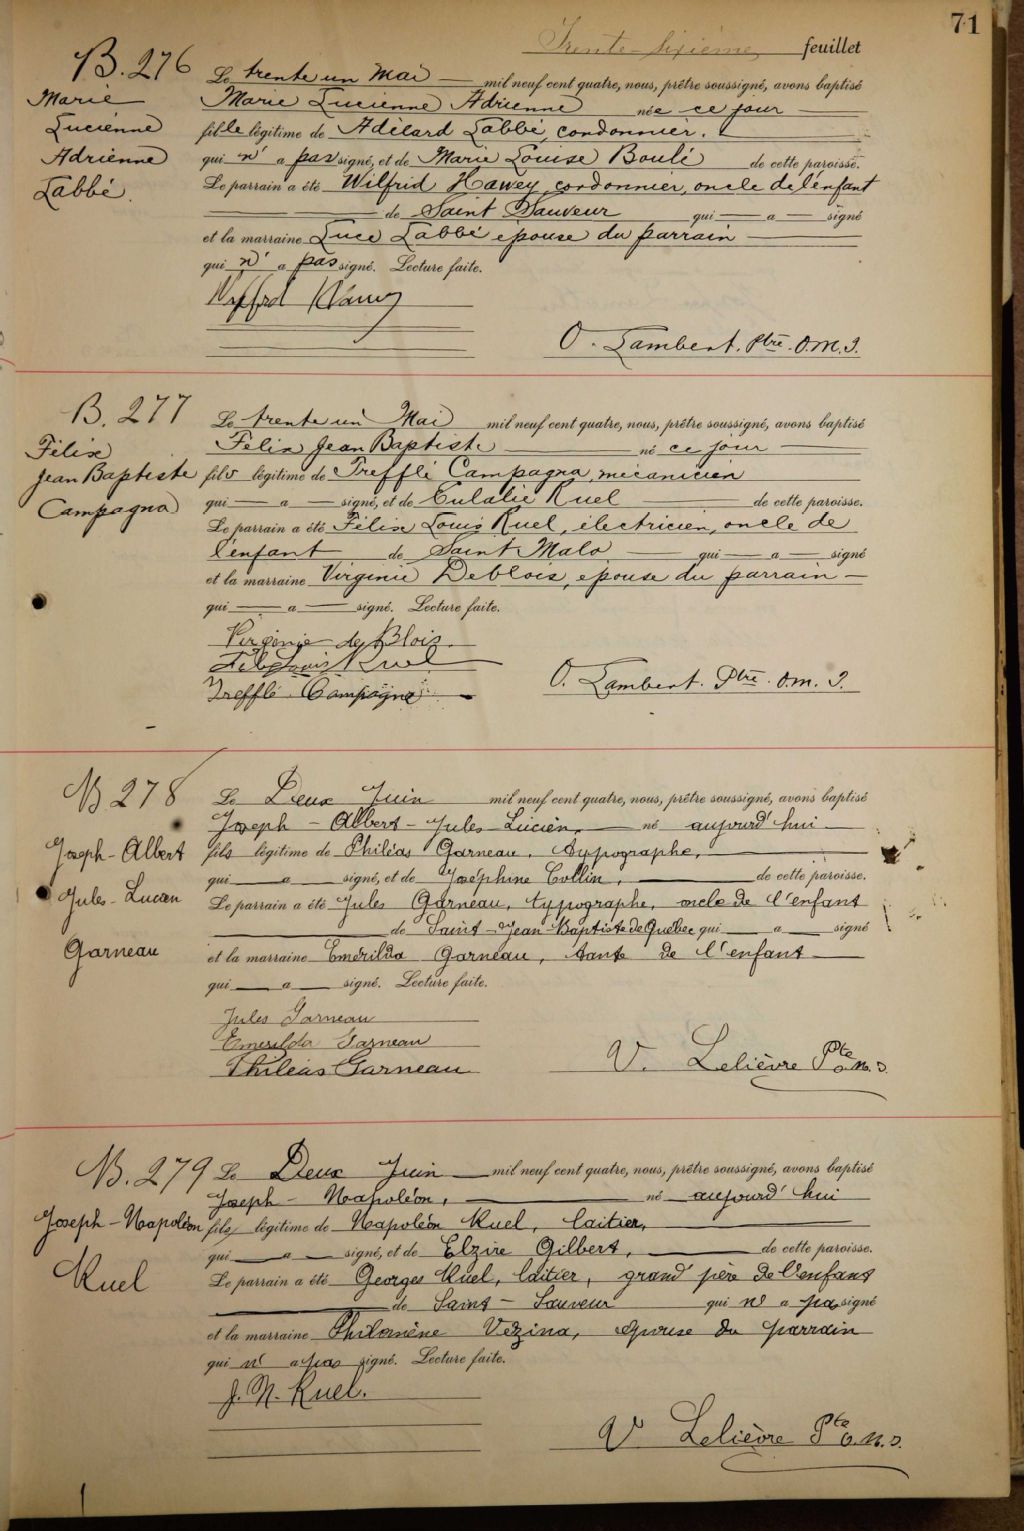 71
Trente-sixième feuillet
B. 276
Marie
Lucienne
Adrienne
Labbé.
Le trente un Mai mil neuf cent quatre, nous, prêtre soussigné, avons baptisé
Marie Lucienne Adrienne née ce jour
fille légitime de Adélard Labbé, cordonnier.
qui n' a pas signé, et de Marie Louise Boulé de cette paroisse.
Le parrain a été Wilfrid Hawey, cordonnier, oncle de l'enfant
de Saint Sauveur qui a signé
et la marraine Luce Labbé épouse du parrain
qui n' a pas signé. Lecture faite.
Wilfrid Hawey
O. Lambert. Ptre. O.M.I.
B. 277
Félix
Jean Baptiste
Campagna
Le trente un Mai mil neuf cent quatre, nous, prêtre soussigné, avons baptisé
Félix Jean Baptiste né ce jour
fils légitime de Trefflé Campagna, mécanicien
qui a signé, et de Eulalie Ruel de cette paroisse.
Le parrain a été Félix Louis Ruel, électricien, oncle de
l'enfant de Saint Malo qui a signé
et la marraine Virginie Deblois, épouse du parrain
qui a signé. Lecture faite.
Virginie de Blois.
Felix Louis Ruel
Trefflé Campagna
O. Lambert. Ptre. O.M.I.
B 278
Joseph-Albert
Jules-Lucien
Garneau
Le Deux Juin mil neuf cent quatre, nous, prêtre soussigné, avons baptisé
Joseph-Albert-Jules-Lucien, né aujourd'hui
fils légitime de Philéas Garneau, typographe,
qui a signé, et de Joséphine Collin, de cette paroisse.
Le parrain a été Jules Garneau, typographe, oncle de l'enfant
de Saint-Jean-Baptiste de Québec qui a signé
et la marraine Emérilda Garneau, tante de l'enfant
qui a signé. Lecture faite.
Jules Garneau
Emerilda Garneau
Philéas Garneau
V. Lelièvre Pte O.M.I.
B. 279
Joseph-Napoléon
Ruel
Le Deux Juin mil neuf cent quatre, nous, prêtre soussigné, avons baptisé
Joseph-Napoléon, né aujourd'hui
fils légitime de Napoléon Ruel, laitier,
qui a signé, et de Elzire Gilbert, de cette paroisse.
Le parrain a été Georges Ruel, laitier, grand'père de l'enfant
de Saint-Sauveur qui n' a pas signé
et la marraine Philomène Vézina, épouse du parrain
qui n' a pas signé. Lecture faite.
J. N. Ruel.
V. Lelièvre Pte O.M.I.